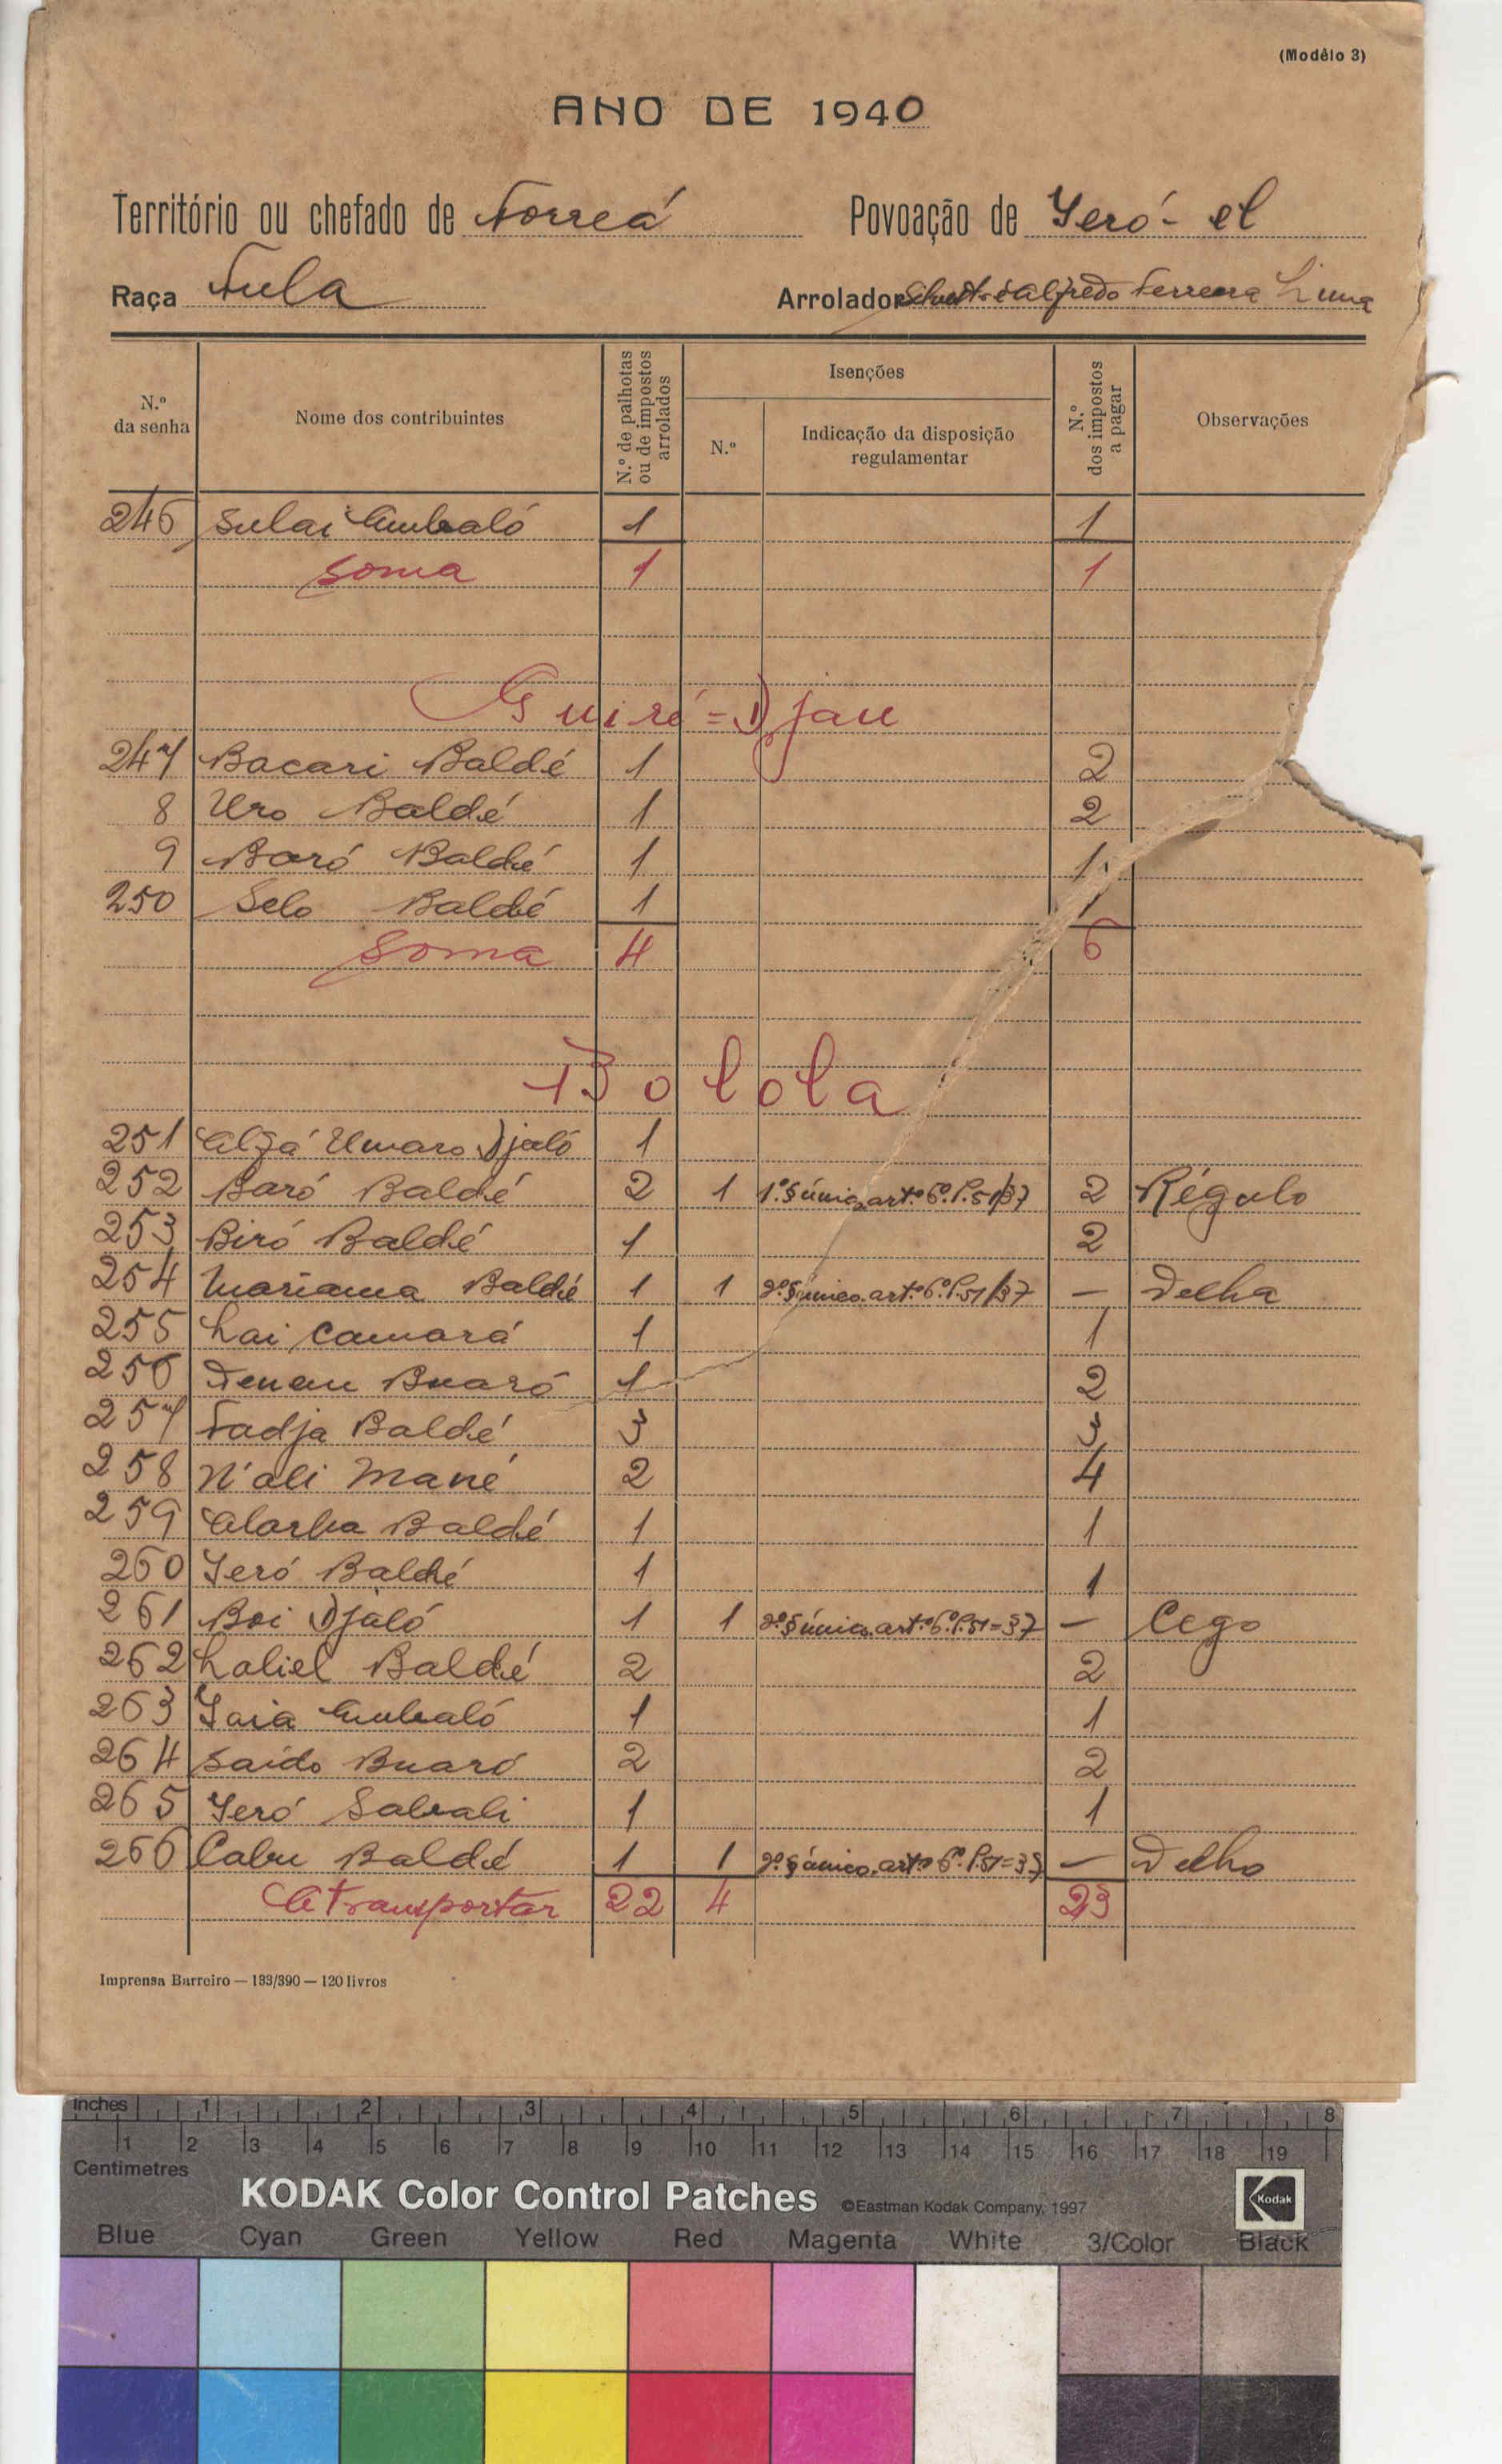 (Modêlo 3)
ANO DE 1940
Território ou chefado de Forreá Povoação de Ieró-el
Raça Fula Arrolador Alfredo Ferreira Lima
N.º da senha
Nome dos contribuintes
N.º de palhotas ou de impostos arrolados
Isenções
N.º
Indicação da disposição regulamentar
N.º dos impostos a pagar
Observações
246 Sulai Embaló 1 1
Soma 1 1
Guiré=Djau
247 Bacari Baldé 1 2
8 Uro Baldé 1 2
9 Baró Baldé 1 1
250 Selo Baldé 1 1
Soma 4 6
Bolola
251 Alfá Umaro Djaló 1
252 Baró Baldé 2 1 1.º § único art.º 6.º P. 51/37 2 Régulo
253 Biró Baldé 1 2
254 Mariama Baldé 1 1 2.º § único. art.º 6.º P. 51/37 — Velha
255 Lai Camará 1 1
256 Denem Buaró 1 2
257 Fadja Baldé 3 3
258 N'ali Mané 2 4
259 Alarba Baldé 1 1
260 Ieró Baldé 1 1
261 Boi Djaló 1 1 2.º § único. art.º 6.º P. 51=37 — Cego
262 Laliel Baldé 2 2
263 Iaia Embaló 1 1
264 Saido Buaró 2 2
265 Ieró Sabali 1 1
266 Cabu Baldé 1 1 2.º § único. art.º 6.º P. 51=37 — Velho
A transportar 22 4 23
Imprensa Barreiro — 193/390 — 120 livros
Inches 1 2 3 4 5 6 7 8
1 2 3 4 5 6 7 8 9 10 11 12 13 14 15 16 17 18 19
Centimetres
KODAK Color Control Patches ©Eastman Kodak Company, 1997 Kodak
Blue Cyan Green Yellow Red Magenta White 3/Color Black